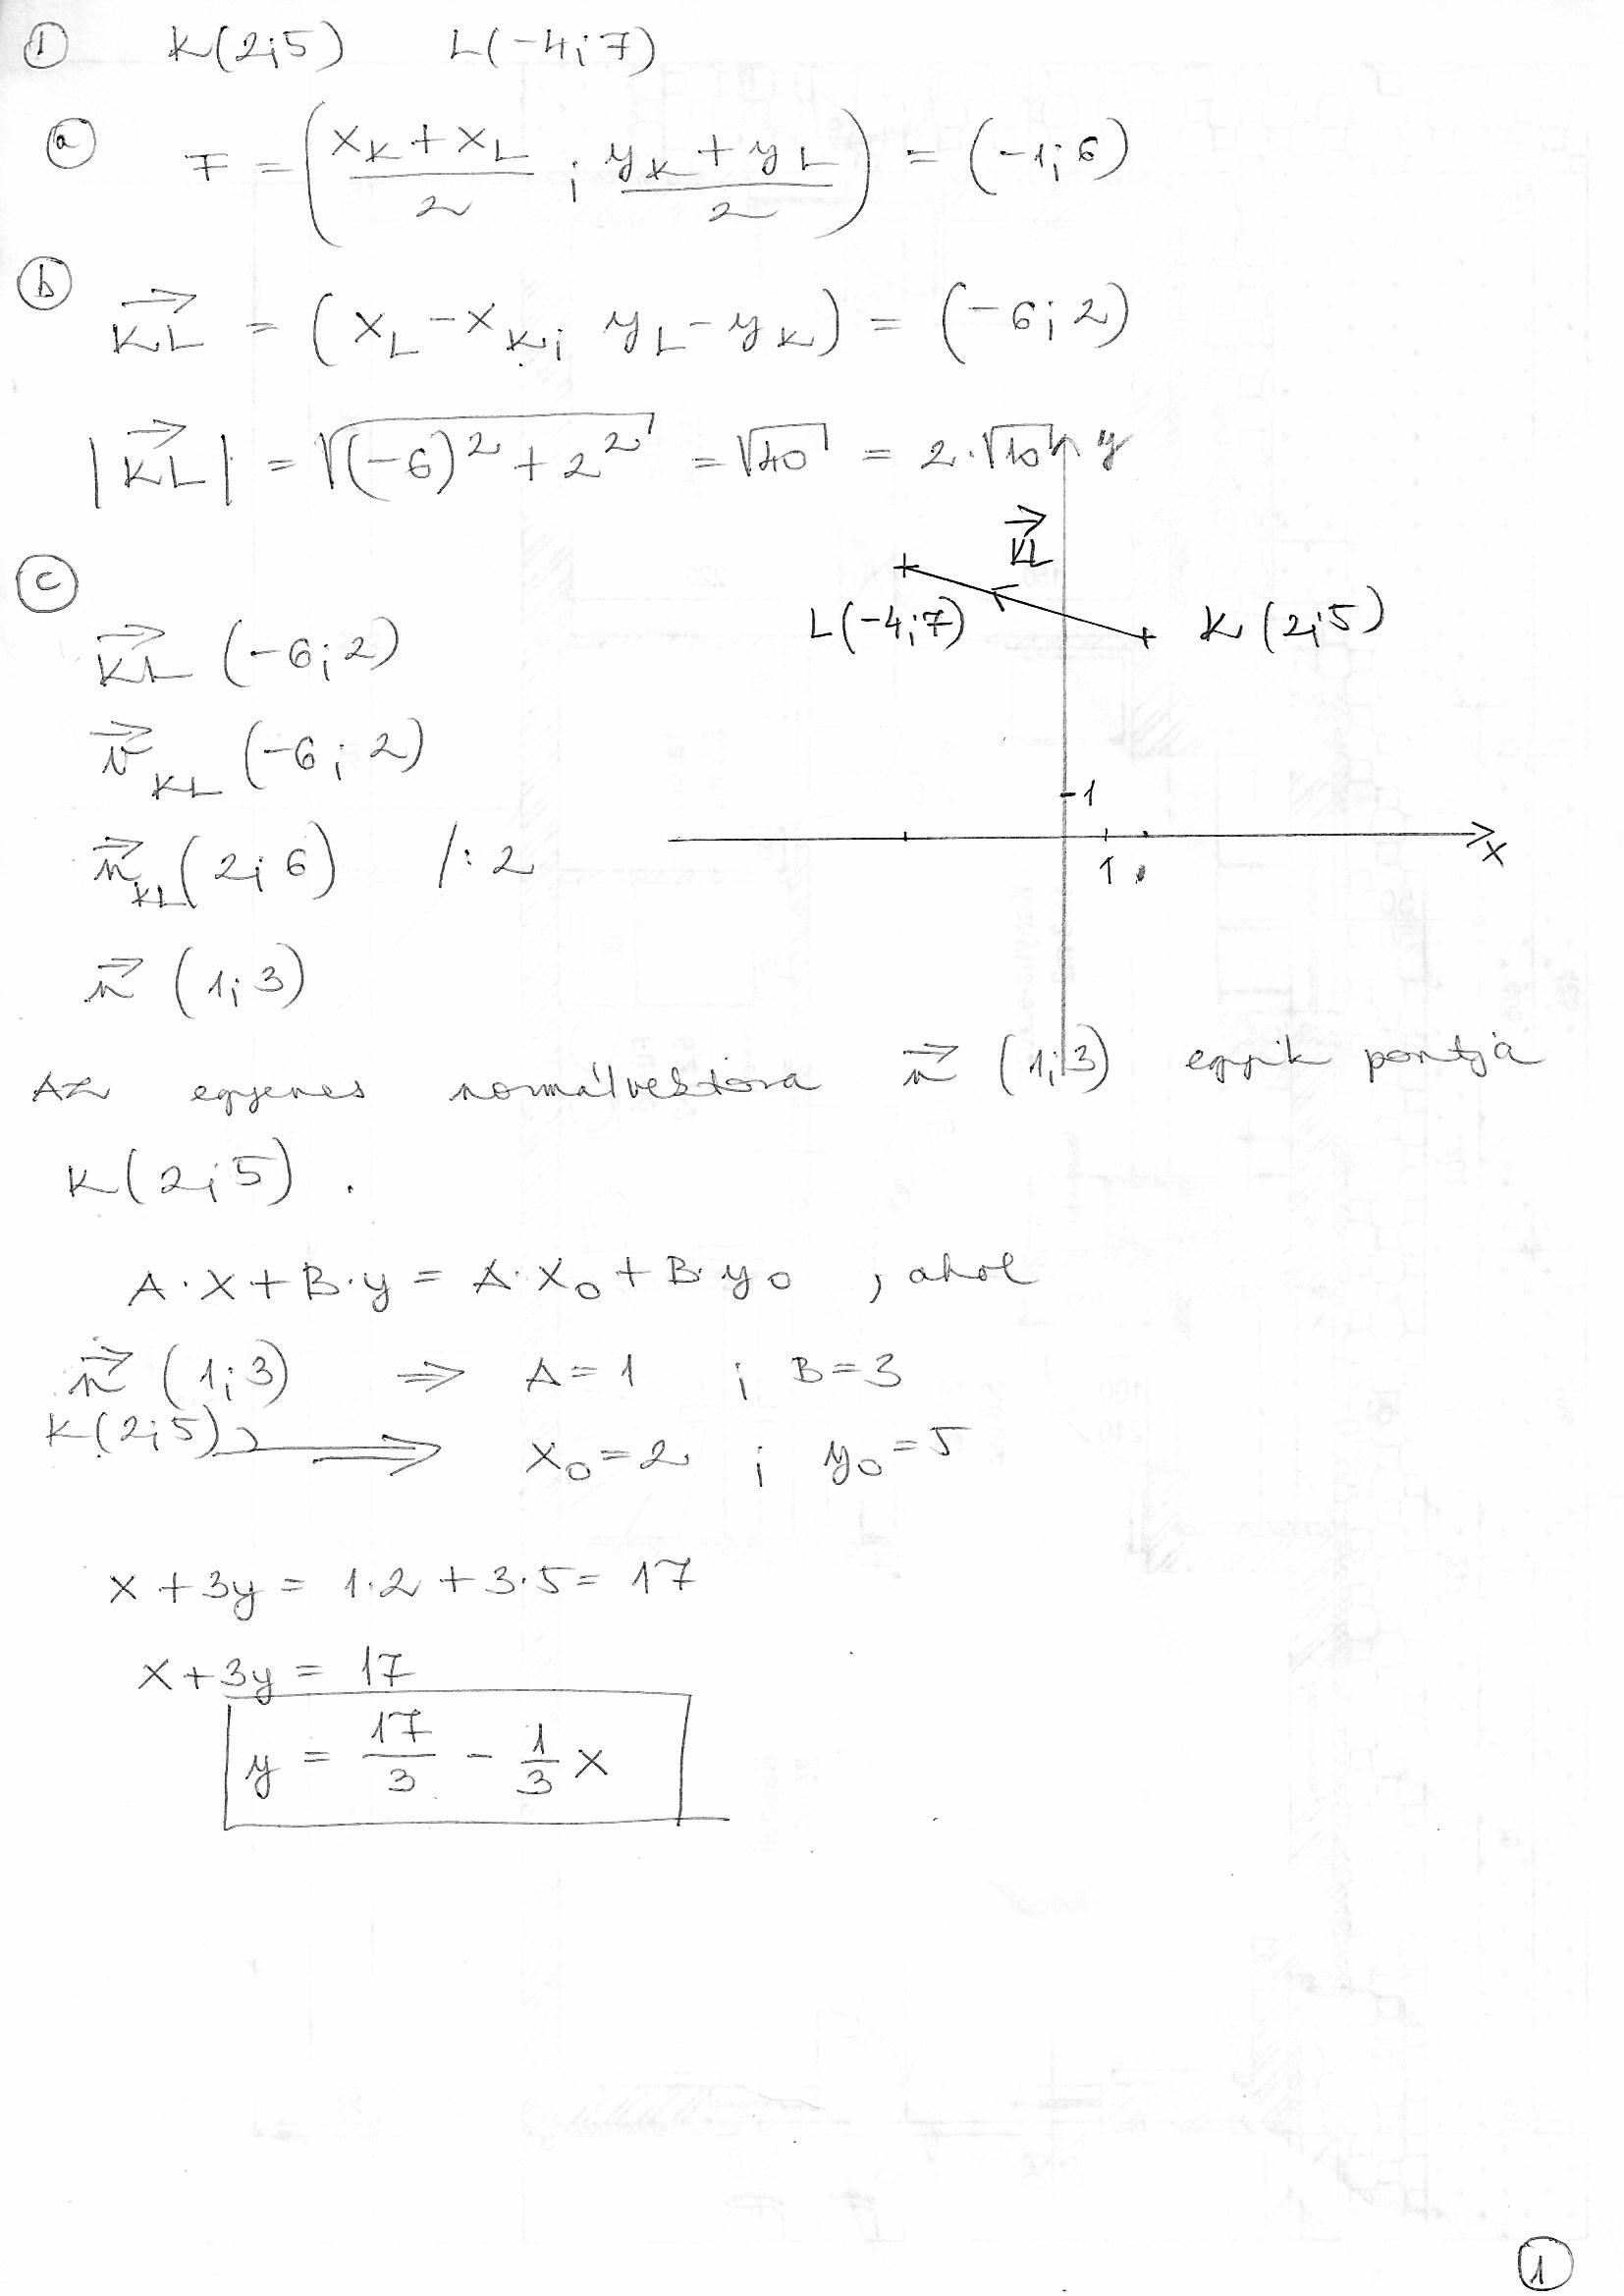 ① K(2;5) L(-4;7)
ⓐ F = ( (x_K + x_L)/2 ; (y_K + y_L)/2 ) = (-1;6)
ⓑ
→KL = (x_L - x_K; y_L - y_K) = (-6;2)
|→KL| = √((-6)² + 2²) = √40 = 2·√10
y
→KL
ⓒ
L(-4;7) K(2;5)
→KL (-6;2)
→v_KL (-6;2)
1
→n_KL (2;6) /:2
1 x
→n (1;3)
Az egyenes normálvektora →n (1;3) egyik pontja
K(2;5).
A·x + B·y = A·x₀ + B·y₀ , ahol
→n (1;3) ⇒ A=1 ; B=3
K(2;5) ⇒ x₀=2 ; y₀=5
x + 3y = 1·2 + 3·5 = 17
x + 3y = 17
y = 17/3 - 1/3 x
①